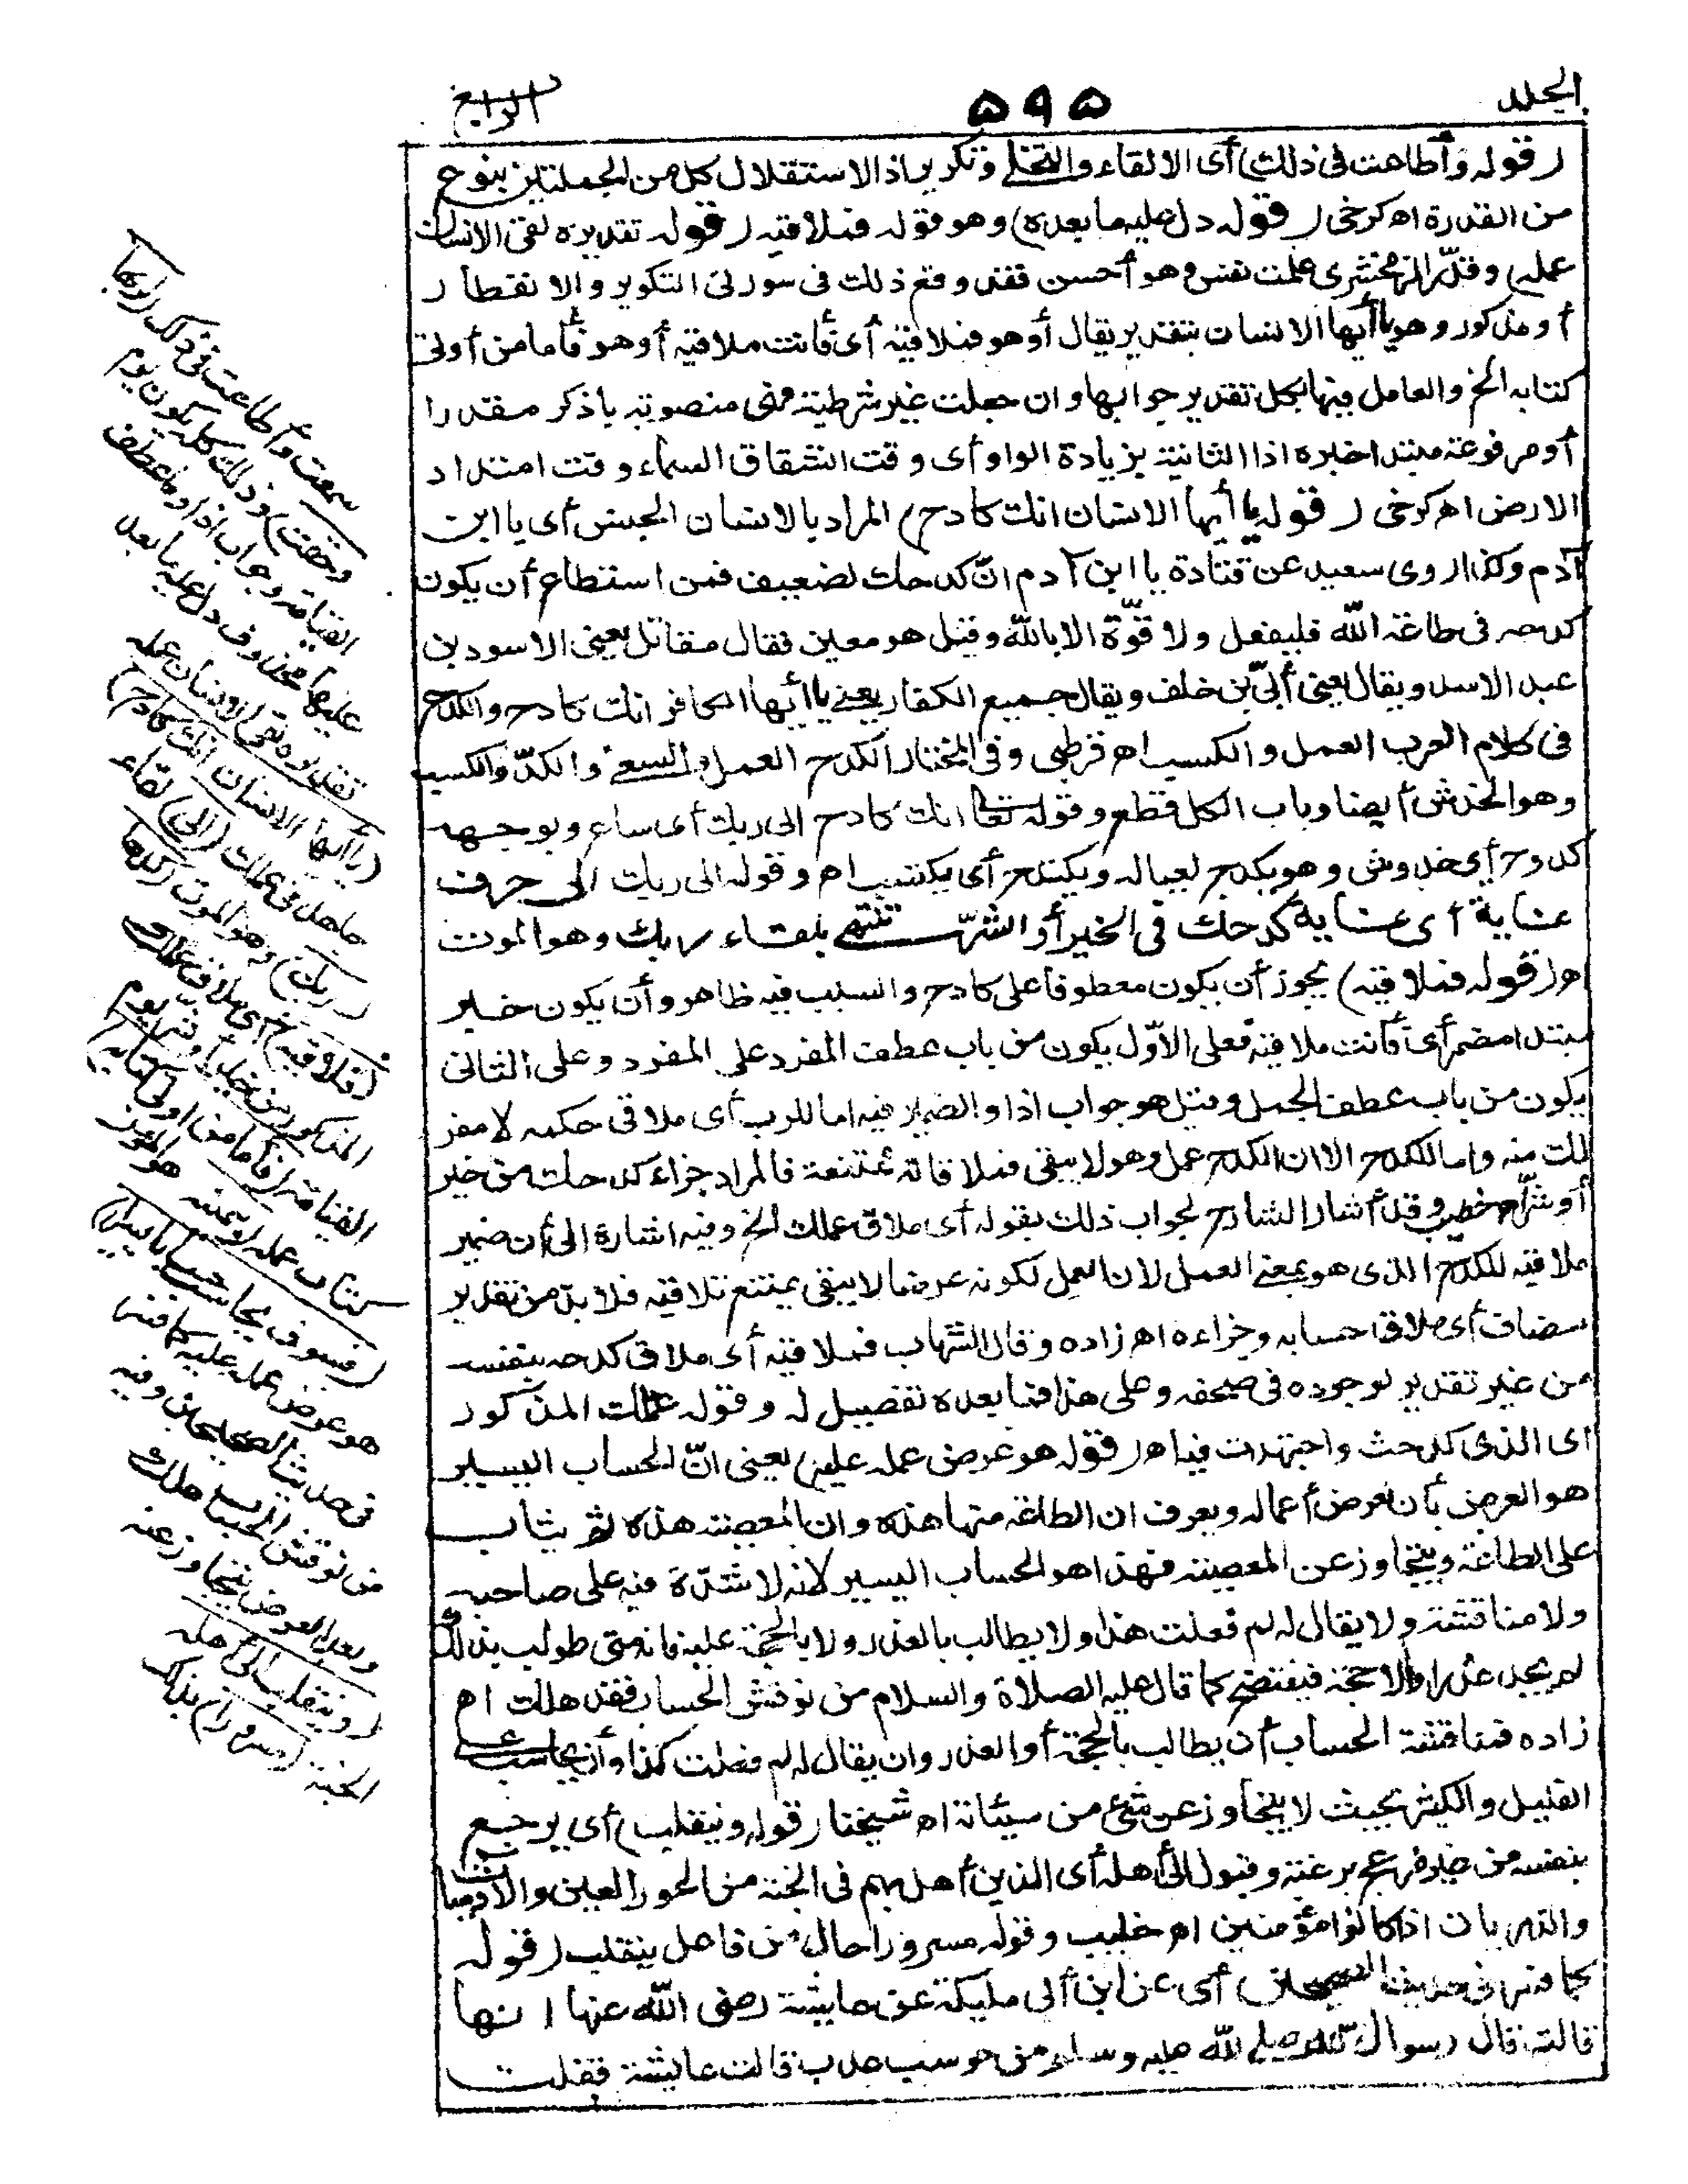 الجلد ۵۹۵ الرابع
(قوله وأطاعت فى ذلك) أى الالقاء والتخلى وتكرير اذ الاستقلال كل من الجملتين بنوع
من القدرة اه كرخى (قوله دل عليه ما بعده) وهو قوله فملاقيه (قوله تقديره لقى الانسان
عمله) وقدّر الزمخشرى علمت نفس وهو أحسن فقد وقع ذلك فى سورتى التكوير والانفطار
أو مذكور وهو يا أيها الانسان بتقدير يقال أو هو فملاقيه أى فأنت ملاقيه أو هو فأما من أوتى
كتابه الخ والعامل فيها بكل تقدير جوابها وان جعلت غير شرطية فهى منصوبة باذكر مقدرا
أو مرفوعة مبتدا خبره اذا الثانية بزيادة الواو أى وقت انشقاق السماء وقت امتداد
الارض اه كرخى (قوله يا أيها الانسان انك كادح) المراد بالانسان الجنس أى يا ابن
آدم وكذا روى سعيد عن قتادة يا ابن آدم انّ كدحك لضعيف فمن استطاع أن يكون
كدحه فى طاعة الله فليفعل ولا قوّة الا بالله وقيل هو معين فقال مقاتل يعنى الاسود بن
عبد الاسد ويقال يعنى أبىّ بن خلف ويقال جميع الكفار يعنى يا أيها الكافر انك كادح والكدح
فى كلام العرب العمل والكسب اه قرطبى وفى المختار الكدح العمل والسعى والكدّ والكسب
وهو الخدش أيضا وباب الكل قطع وقوله تعا انك كادح الى ربك أى ساع وبوجهه
كدوح أى خدوش وهو يكدح لعياله ويكتدح أى يكتسب اه وقوله الى ربك الى حرف
غاية أى غاية كدحك فى الخير أو الشرّ تنتهى بلقاء ربك وهو الموت
اه (قوله فملاقيه) يجوز أن يكون معطوفا على كادح والسبب فيه ظاهر وأن يكون خبر
مبتدا مضمر أى فأنت ملاقيه فعلى الاوّل يكون من باب عطف المفرد على المفرد وعلى الثانى
يكون من باب عطف الجمل وقيل هو جواب اذا والضمير فيه اما للرب أى ملاقى حكمه لا مفر
لك منه واما للكدح الا ان الكدح عمل وهو لا يبقى فملاقاته ممتنعة فالمراد جزاء كدحك من خير
أو شرّ اه خطيب وقد أشار الشارح لجواب ذلك بقوله أى ملاق عملك الخ وفيه اشارة الى أن ضمير
ملاقيه للكدح الذى هو بمعنى العمل لان العمل لكونه عرضا لا يبقى يمتنع تلاقيه فلا بدّ من تقدير
مضاف أى ملاق حسابه وجزاءه اه زاده وقال الشهاب فملاقيه أى ملاق كدحه بنفسه
من غير تقدير لوجوده فى صحفه وعلى هذا فما بعده تفصيل له وقوله عملك المذكور
اى الذى كدحت واجتهدت فيه اه (قوله هو عرض عمله عليه) يعنى انّ الحساب اليسير
هو العرض بأن تعرض أعماله ويعرف ان الطاعة منها هذه وان المعصية هذه ثم يثاب
على الطاعة ويتجاوز عن المعصية فهذا هو الحساب اليسير لانه لا شدّة فيه على صاحبه
ولا مناقشة ولا يقال له لم فعلت هذا ولا يطالب بالعذر ولا بالحجة عليه فانه متى طولب بذلك
لم يجد عذرا ولا حجة فيفتضح كما قال عليه الصلاة والسلام من نوقش الحساب فقد هلك اه
زاده فمناقشة الحساب أن يطالب بالحجة أو العذر وان يقال له لم فعلت كذا وأن يحاسب على
القليل والكثير بحيث لا يتجاوز عن شئ من سيئاته اه شيخنا (قوله وينقلب) أى يرجع
بنفسه من غير مزعج برغبة وقبول الى أهله أى الذين أهل بهم فى الجنة من الحور العين والآدميات
والذريات اذا كانوا مؤمنين اه خطيب وقوله مسرورا حال من فاعل ينقلب (قوله
كما فسر فى حديث الصحيحين) أى عن ابن أبى مليكة عن عايشة رضى الله عنها انها
قالت قال رسول الله صلى الله عليه وسلم من حوسب عذب قالت عايشة فقلت
سمعت وأطاعت فى ذلك (ربها
وحقت) وذلك كله يكون يوم
القيامة وجواب اذا وما عطف
عليها محذوف دل عليه ما بعده
تقديره لقى الانسان عمله
(يا أيها الانسان انك كادح)
جاهد فى عملك (الى) لقاء
(ربك) وهو الموت (كدحا
فملاقيه) أى ملاق عملك
المذكور من خير أو شر يوم
القيامة (فأما من اوتى كتابه)
كتاب عمله (بيمينه) هو المؤمن
(فسوف يحاسب حسابا يسيرا)
هو عرض عمله عليه كما فسر
فى حديث الصحيحين وفيه
من نوقش الحساب هلك
وبعد العرض يتجاوز عنه
(وينقلب الى أهله)
الجنة (مسرورا) بذلك